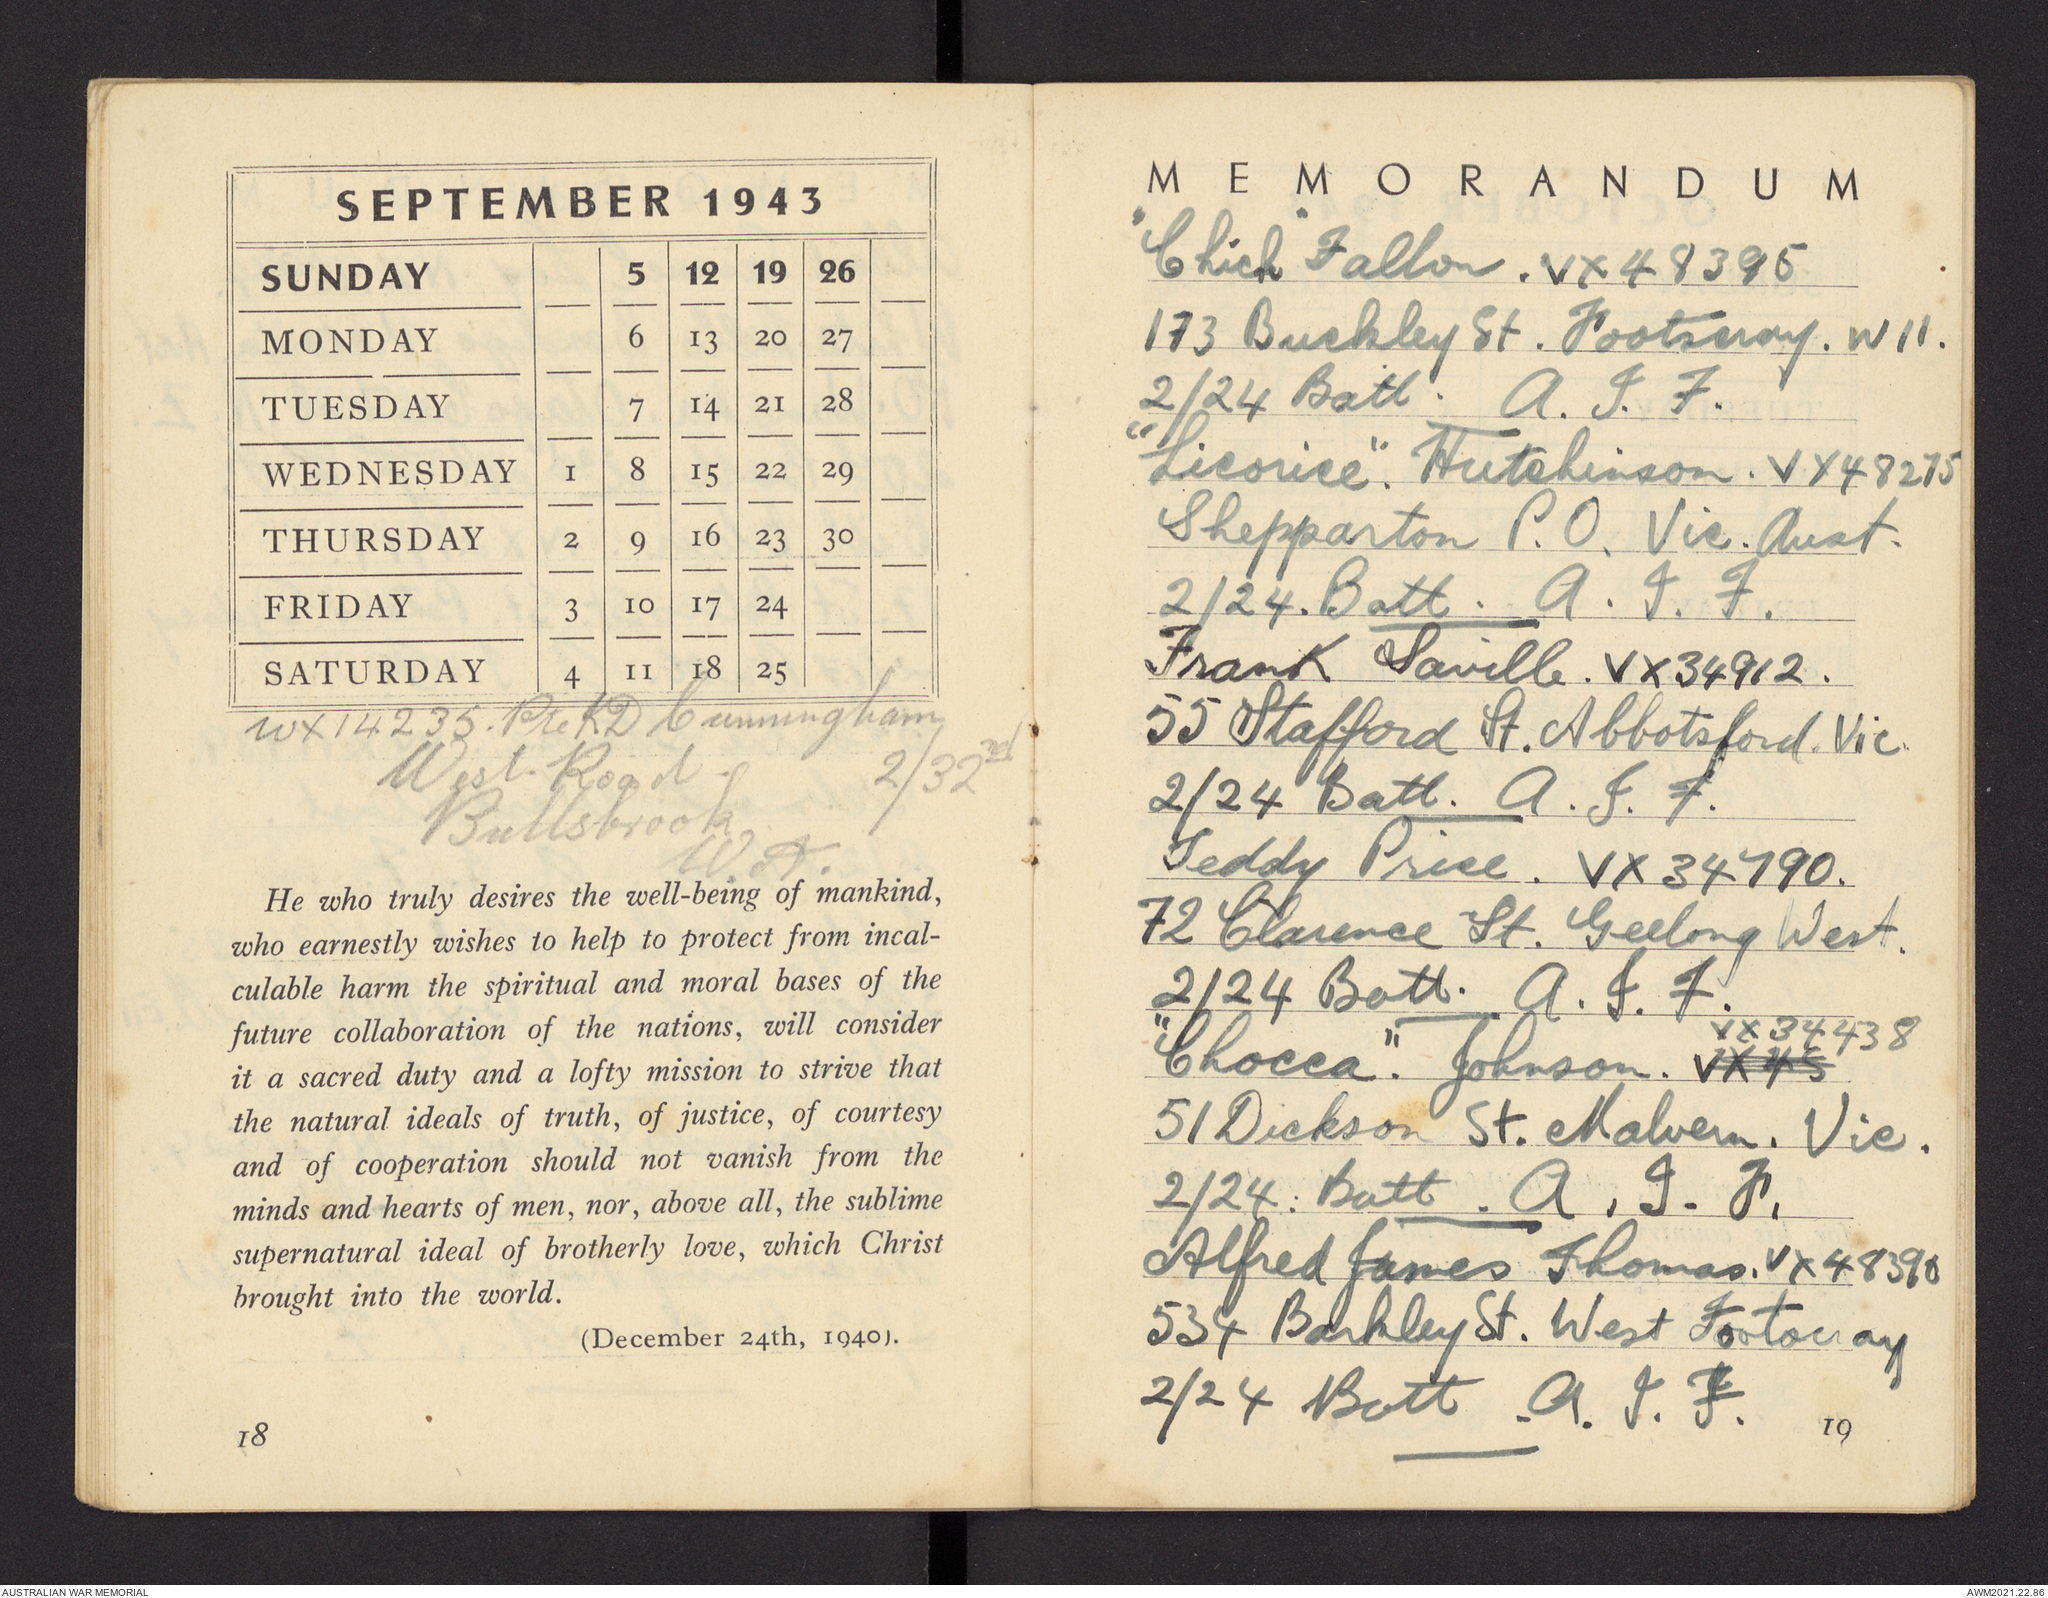 SEPTEMBER 1943
SUNDAY 5 12 19 26
MONDAY 6 13 20 27
TUESDAY 7 14 21 28
WEDNESDAY 1 8 15 22 29
THURSDAY 2 9 16 23 30
FRIDAY 3 10 17 24
SATURDAY 4 11 18 25
WX14235. Pte K D Cunningham
West Road 2/32nd
Bullsbrook
W.A.
He who truly desires the well-being of mankind,
who earnestly wishes to help to protect from incal-
culable harm the spiritual and moral bases of the
future collaboration of the nations, will consider
it a sacred duty and a lofty mission to strive that
the natural ideals of truth, of justice, of courtesy
and of cooperation should not vanish from the
minds and hearts of men, nor, above all, the sublime
supernatural ideal of brotherly love, which Christ
brought into the world.
(December 24th, 1940).
18
MEMORANDUM
"Chick" Fallon. VX48395
173 Buckley St. Footscray. W11.
2/24 Batt. A. I. F.
"Licorice". Hutchinson. VX48275
Shepparton P.O. Vic. Aust.
2/24. Batt. A. I. F.
Frank Saville. VX34912.
55 Stafford St. Abbotsford. Vic.
2/24 Batt. A. I. F.
Teddy Price. VX34790.
72 Clarence St. Geelong West.
2/24 Batt. A. I. F.
VX34438
"Chocca". Johnson. VX45
51 Dickson St. Malvern. Vic.
2/24. Batt. A. I. F.
Alfred James Thomas. VX48390
534 Barkley St. West Footscray
2/24 Batt. A. I. F.
19
AUSTRALIAN WAR MEMORIAL
AWM2021.22.86